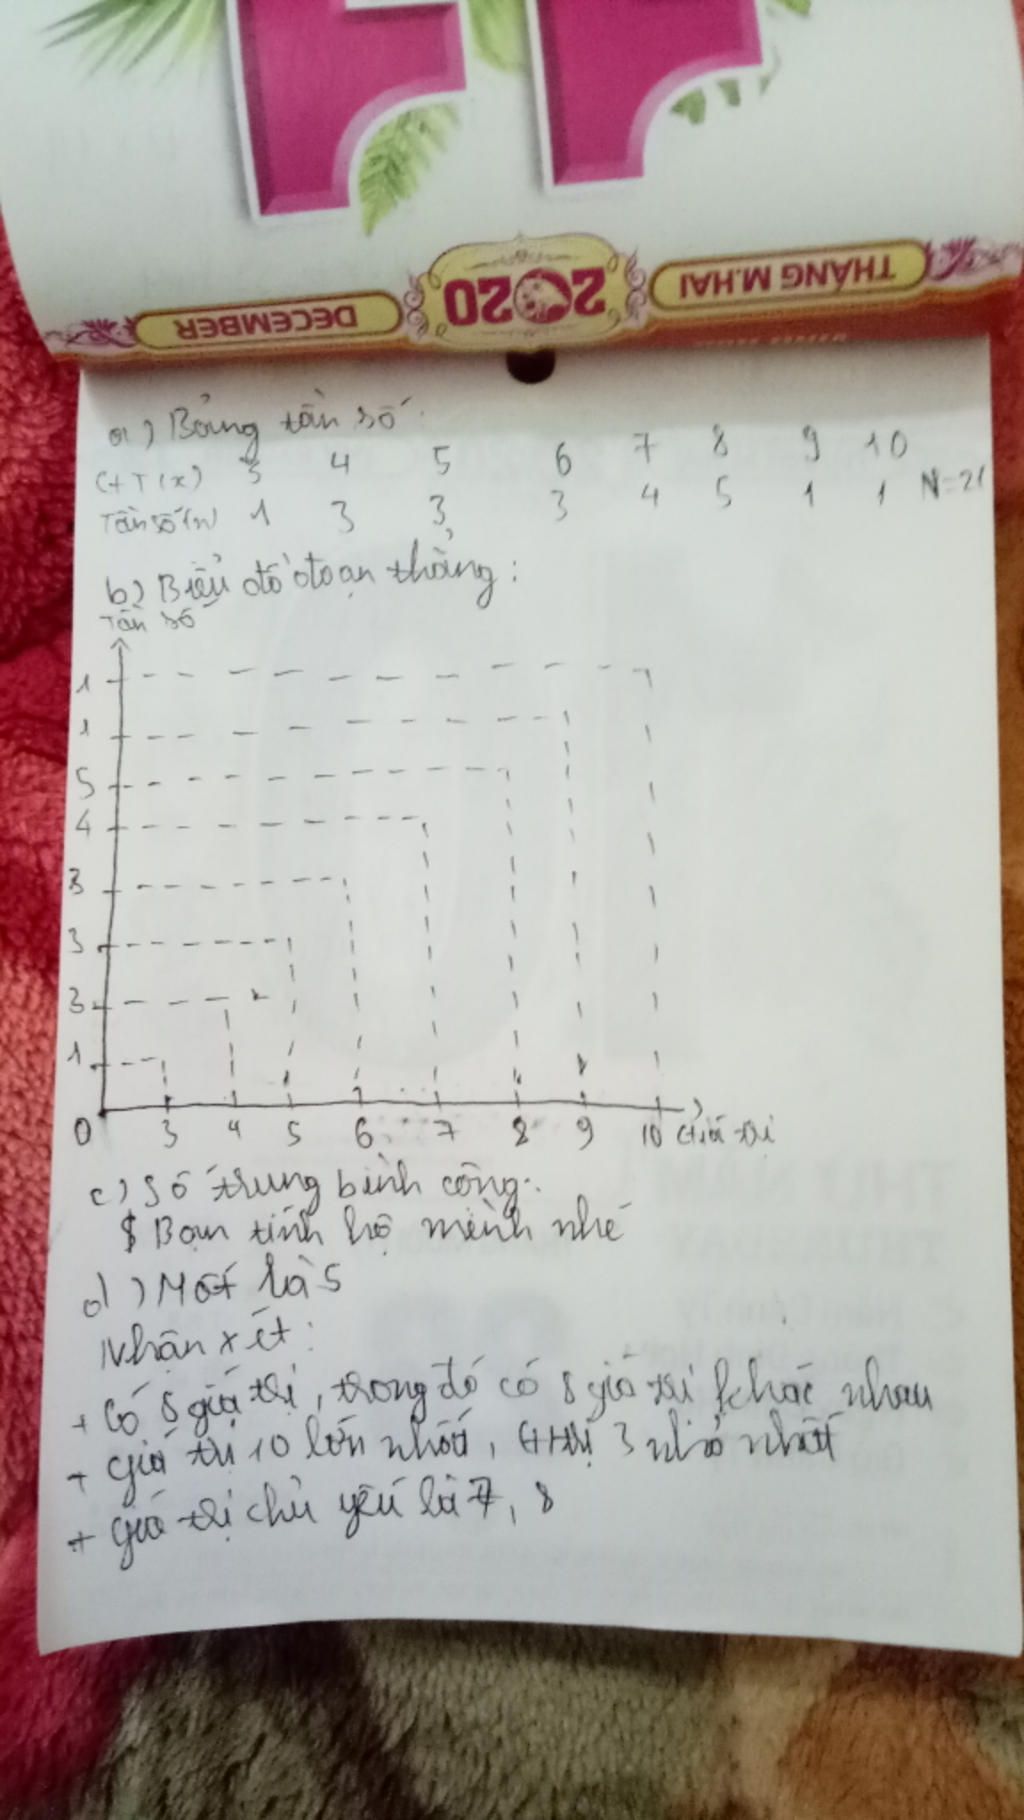 DECEMBER 2020 THÁNG M.HAI
a) Bảng tần số
GT(x) 3 4 5 6 7 8 9 10
Tần số(n) 1 3 3 3 4 5 1 1 N=21
b) Biểu đồ đoạn thẳng:
Tần số
1
1
5
4
3
3
3
1
0 3 4 5 6 7 8 9 10 Giá trị
c) Số trung bình cộng:
$ Bạn tính hộ mình nhé
d) Mốt là 5
Nhận xét:
+ Có 8 giá trị, trong đó có 8 giá trị khác nhau
+ giá trị 10 lớn nhất, gtrị 3 nhỏ nhất
+ giá trị chủ yếu là 7, 8